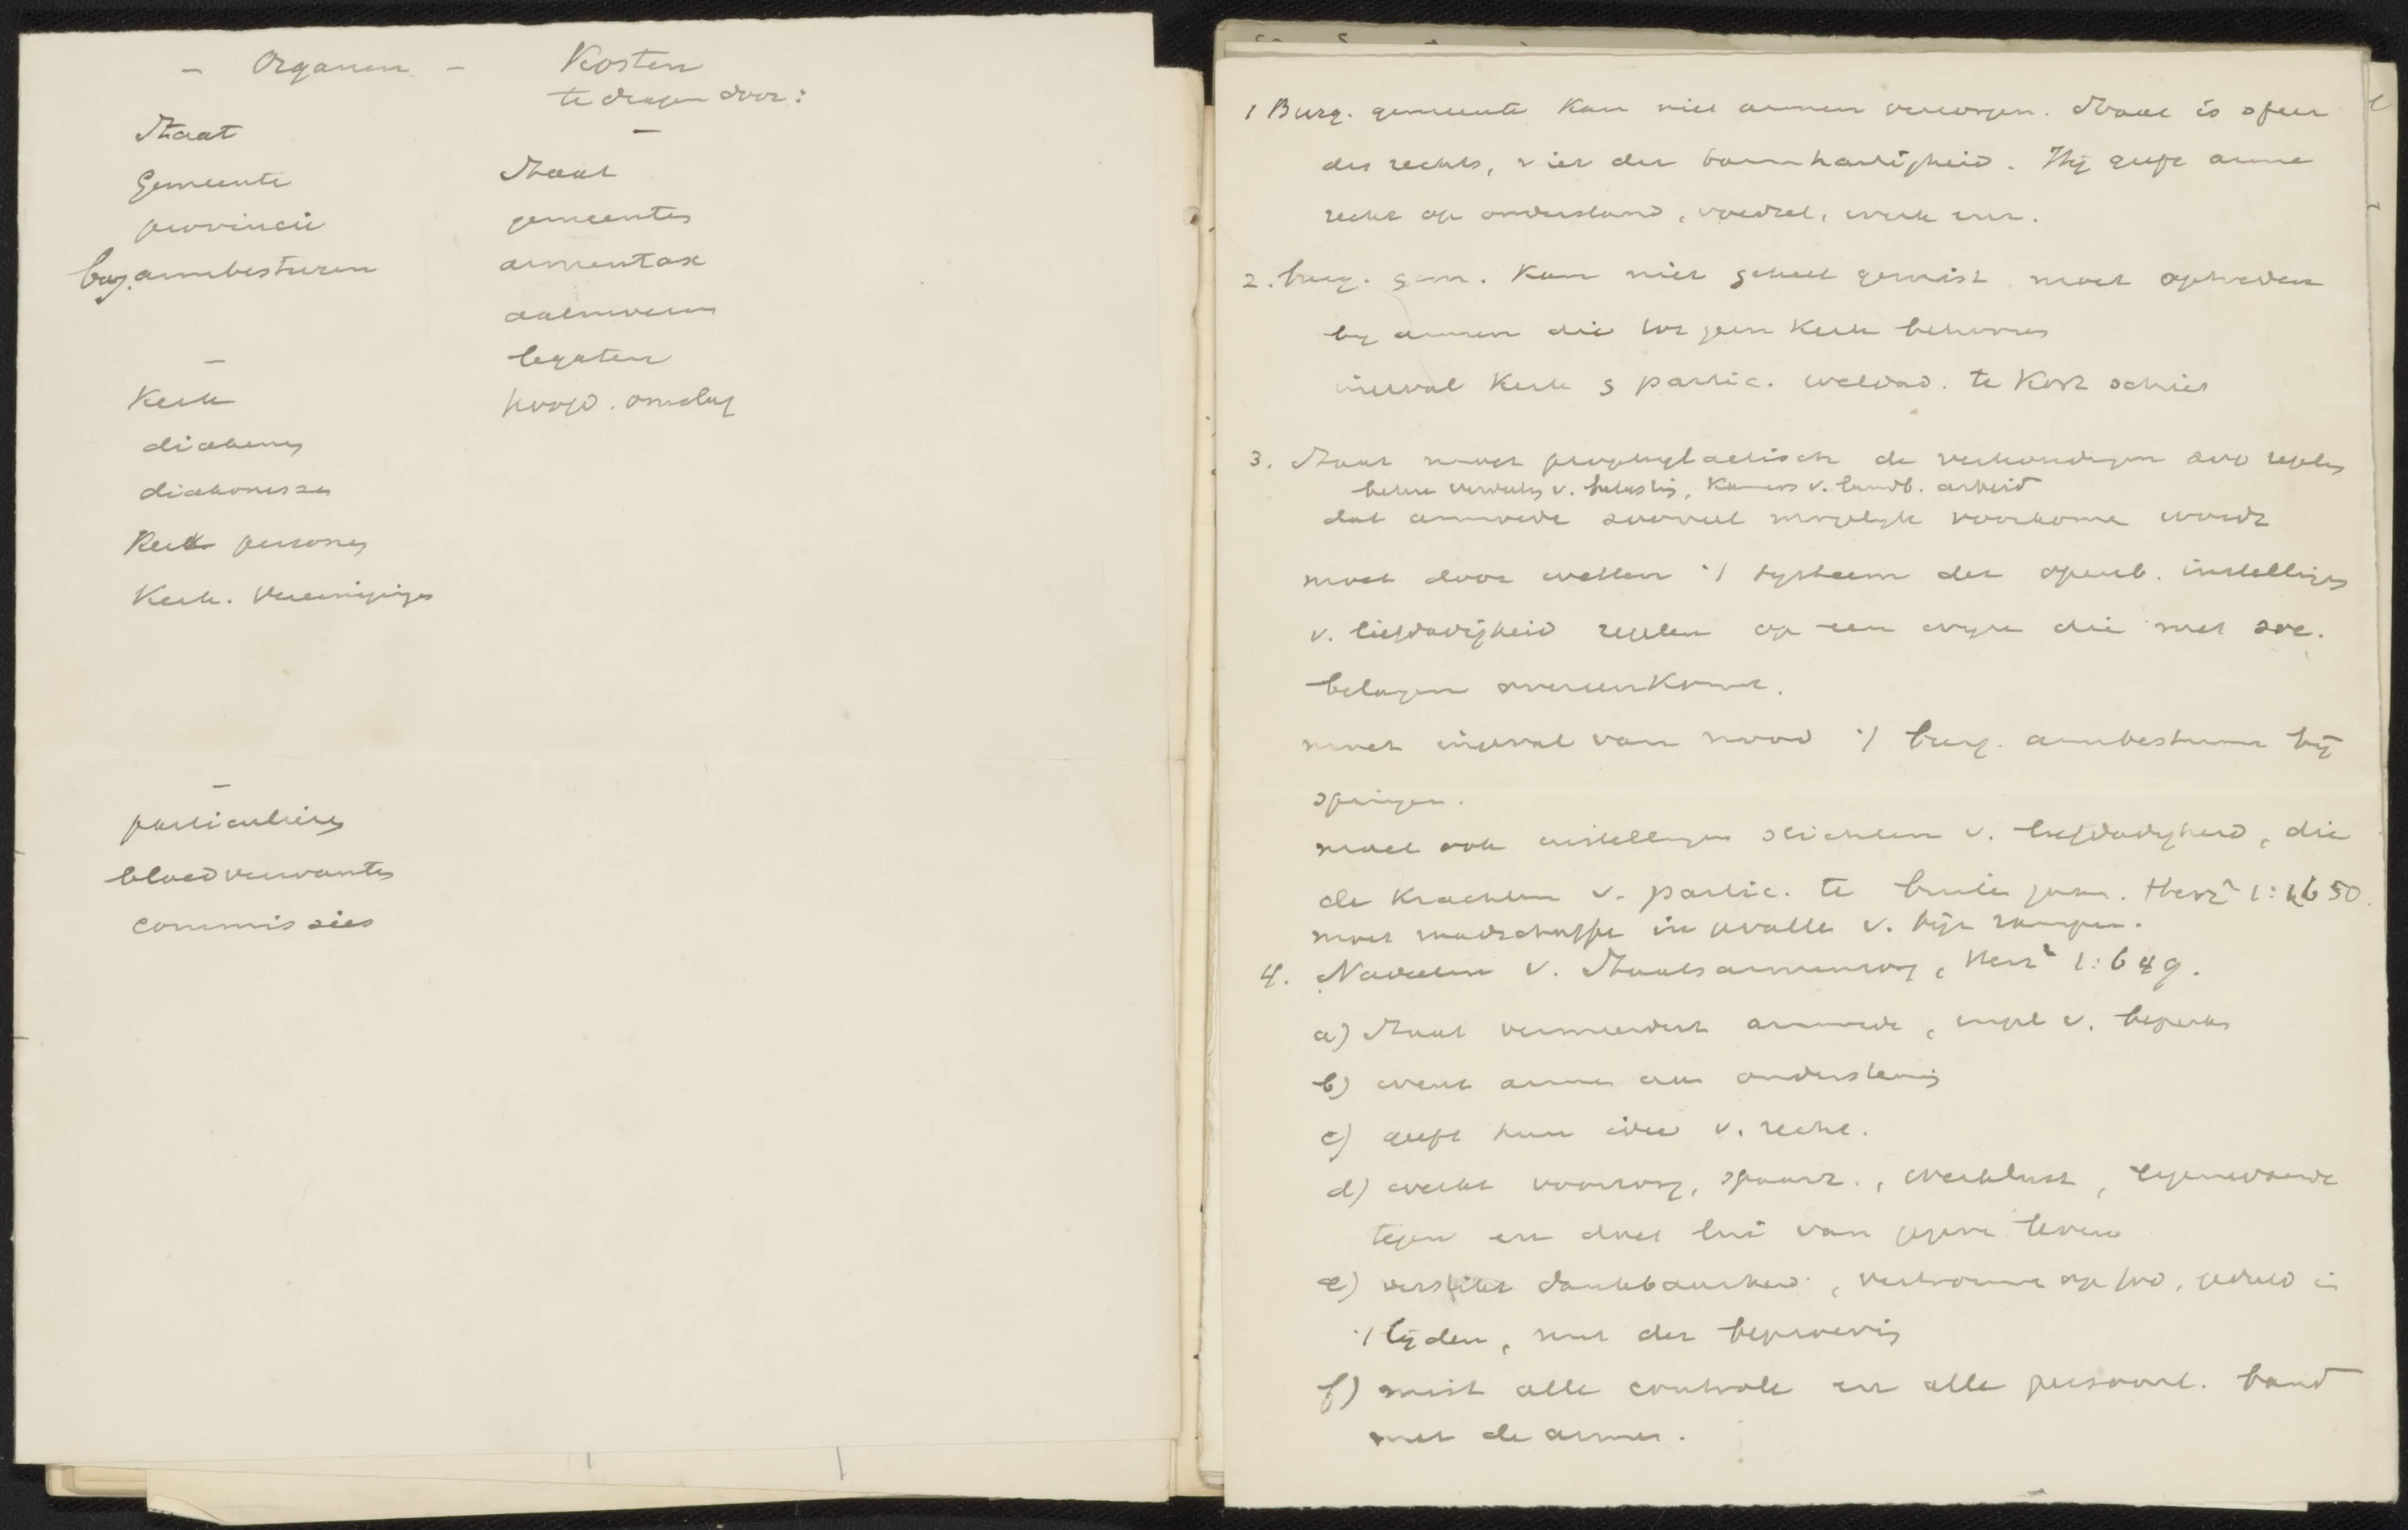 - Organen -
Staat
Gemeente
provincie
burg. armbesturen
-
Kerk
diakenen
diakonessen
Kerk. personen
Kerk. Vereenigingen
-
particulieren
bloedverwanten
commissies
Kosten
te dragen door:
-
Staat
gemeenten
armentax
aalmoezen
legaten
hoofd. omslag
1 Burg. gemeente kan niet armen verzorgen. Staat is sfeer
des rechts, niet der barmhartigheid. Hij geeft arme
recht op onderstand, voedsel, werk enz.
2. burg. gem. kan niet geheel gemist moet optreden
bij armen die tot geen Kerk behooren
ingeval Kerk & partic. weldad. te kort schiet
3. Staat moet prophylactisch de verhoudingen zoo regelen
betere verdeeling v. belasting, Kamers v. landb. arbeid
dat armoede zooveel mogelijk voorkome wordt
moet door wetten 't systeem der openb. instellingen
v. liefdadigheid regelen op een wijze die met soc.
belangen overeenkomt.
moet ingeval van nood 't burg. armbestuur bij
springen.
moet ook instellingen stichten v. liefdadigheid, die
de krachten v. partic. te buiten gaan. Herz² 1:650.
moet raadschaffe in gevalle v. tijd. rampen.
4. Nadeelen v. Staatsarmenzorg, Herz² 1:649.
a) Staat vermeerdert armoede, inpl. v. beperkt
b) went armen aan ondersteuning
c) geeft hun idee v. recht.
d) werkt voorzorg, spaarz., werklust, eigenwaarde
tegen en doet lui van gegeve leven
e) verstikt dankbaarheid, vertrouwen op God, geduld in
't lijden, nut der beproeving
f) mist alle controle en alle persoonl. band
met de armen.